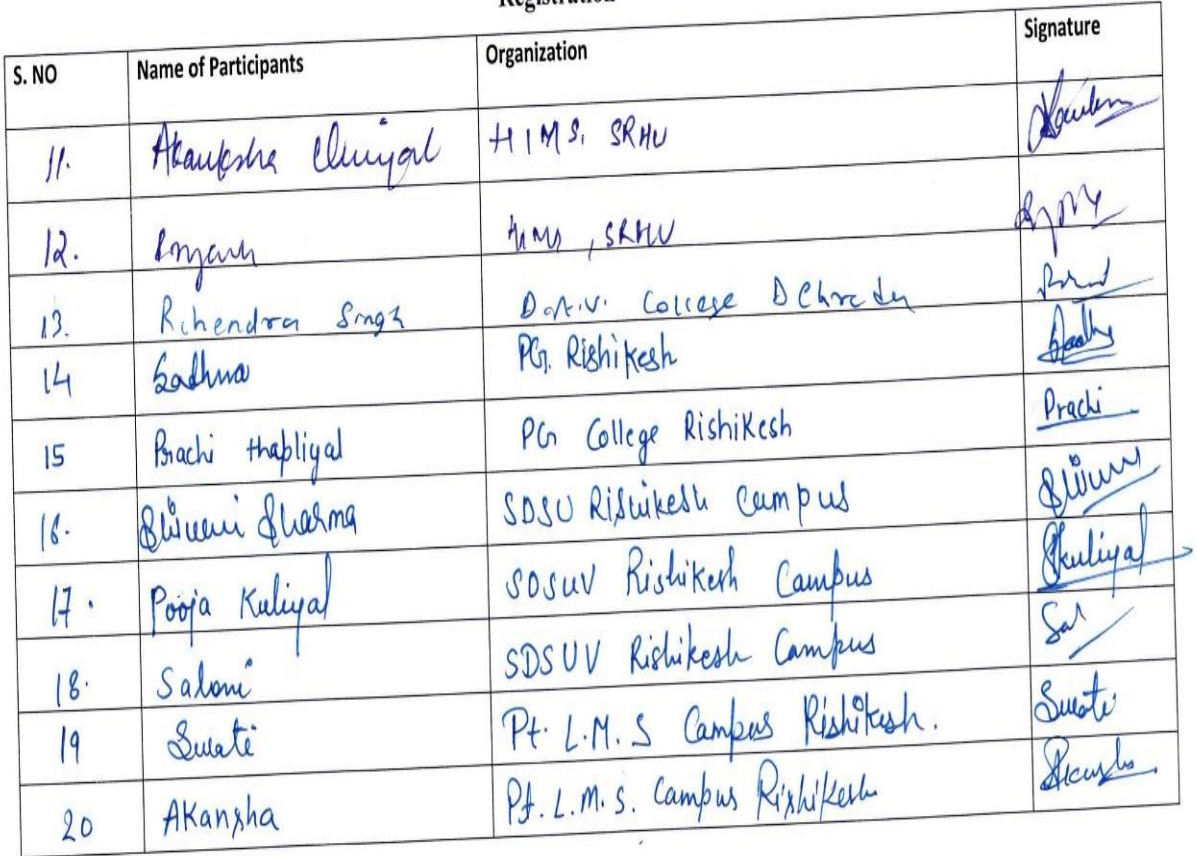 Registration
S. NO Name of Participants Organization Signature
11. Akanksha Uniyal HIMS, SRHU
12. HIMS, SRHU
13. Rihendra Singh D.A.V. College Dehradun
14 Sadhna PG. Rishikesh
15 Prachi thapliyal PG College Rishikesh Prachi
16. Shivani Sharma SDSU Rishikesh Campus
17. Pooja Kuliyal SDSUV Rishikesh Campus Pkuliyal
18. Saloni SDSUV Rishikesh Campus Sal
19 Swati Pt. L.M.S Campus Rishikesh. Swati
20 AKansha Pt. L.M.S. Campus Rishikesh